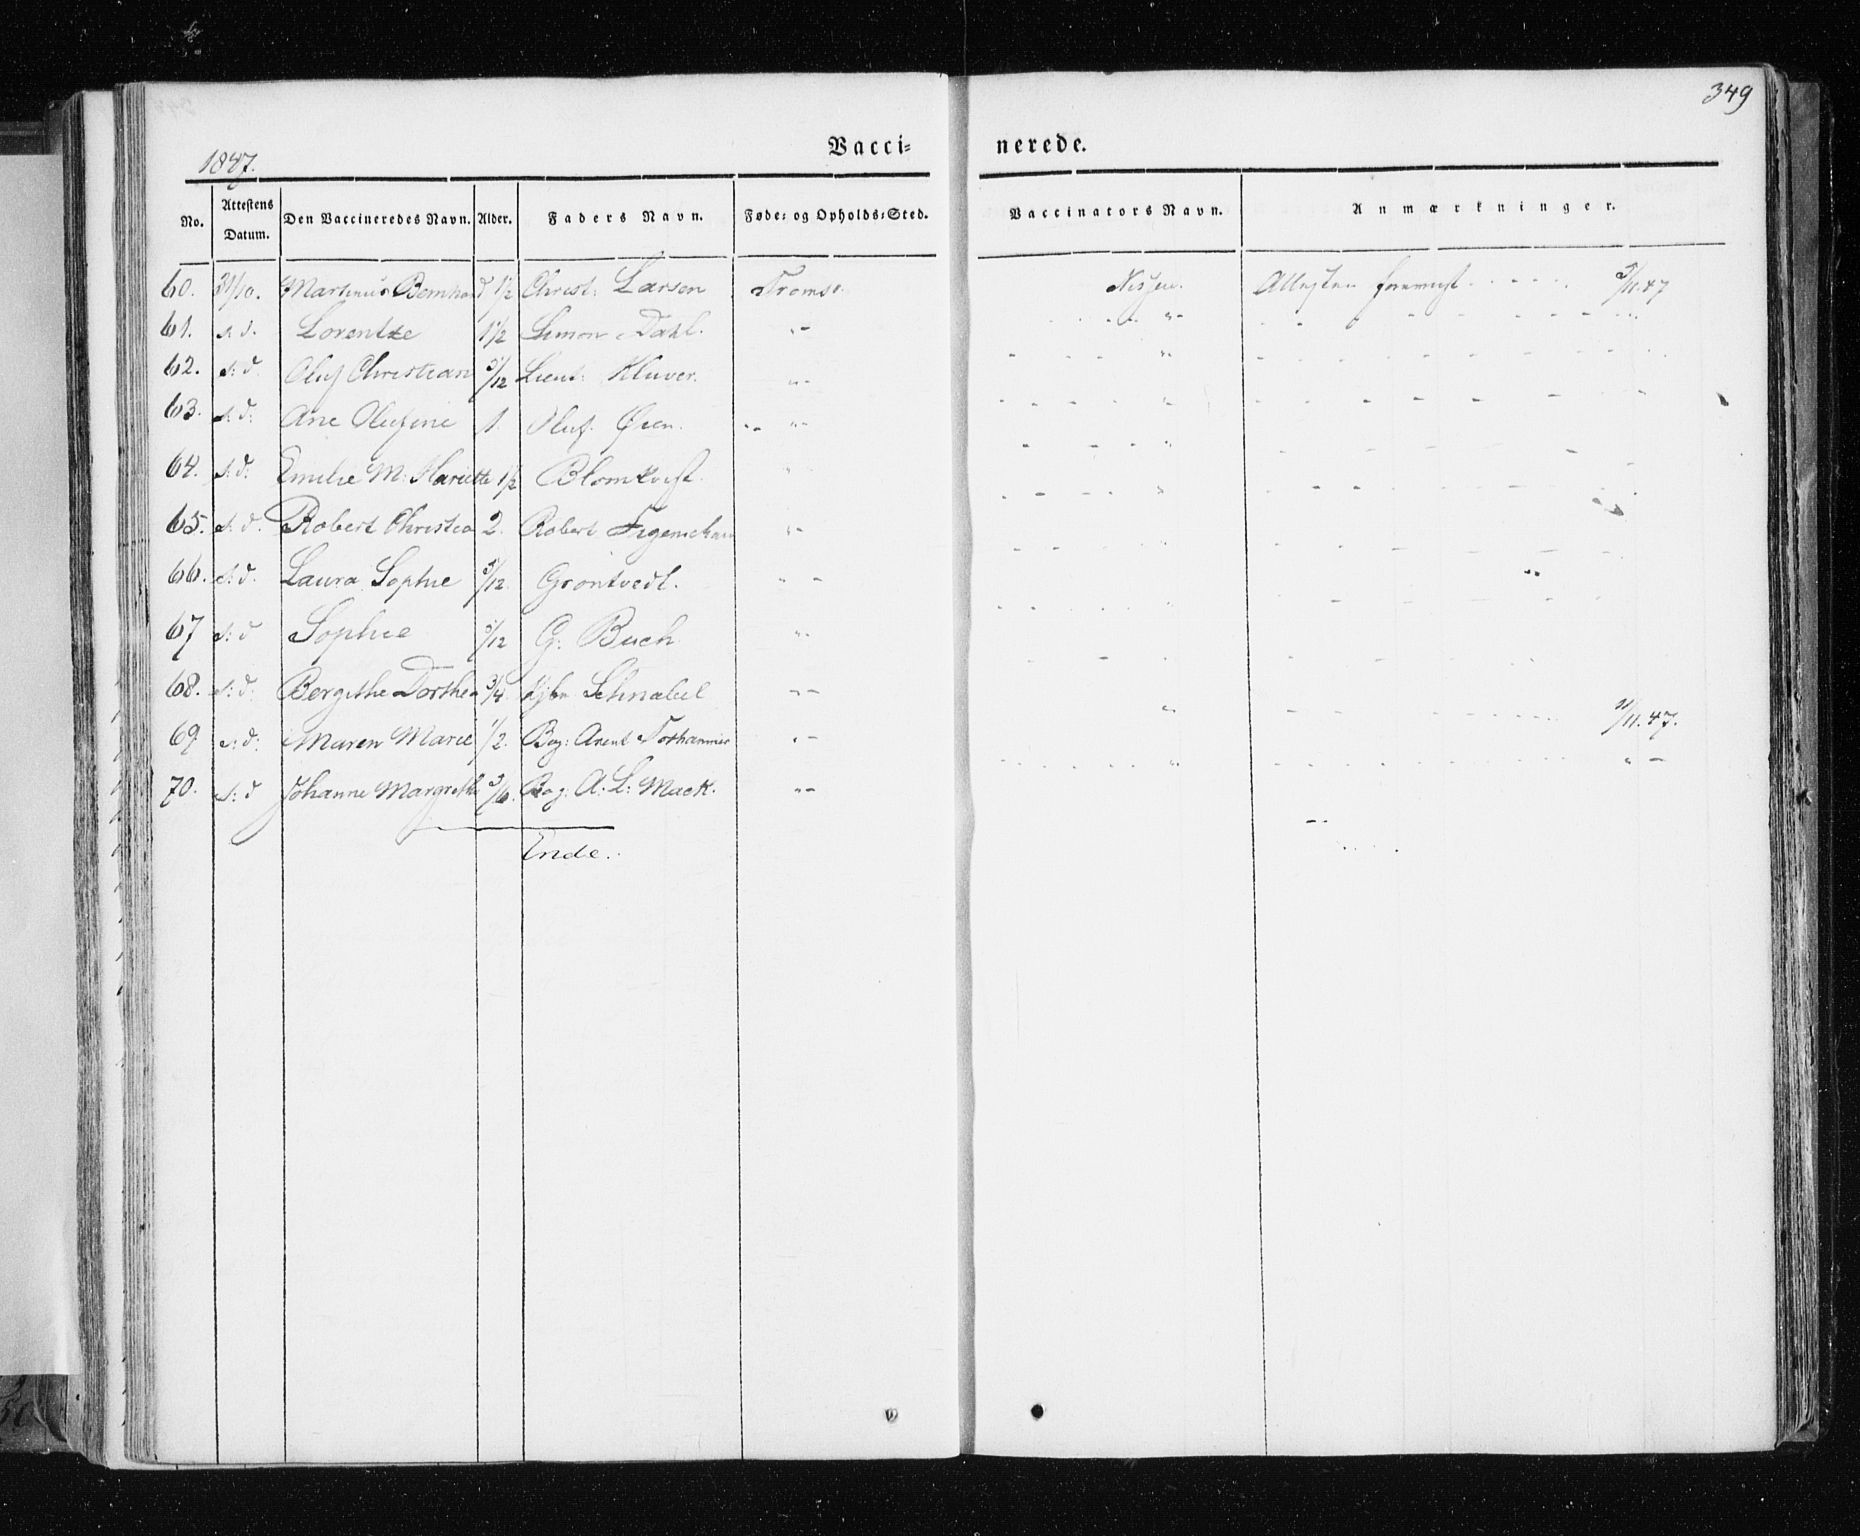 349
1847.
Vacci- nerede.
No. Attestens Datum. Den Vaccineredes Navn. Alder. Faders Navn. Føde- og Opholds-Sted. Vaccinators Navn. Anmærkninger.
60. 31/10. Martinus Bernhard 1½ Christ: Larsen Tromsø. Nissen. Attesten foreviist 5/11.47
61. s. d. Lorentze 1½ Simon Dahl. "- "-
62. s: d. Oluf Christian /12 Lieut: Kluver. "- "
63. s. d: Ane Olufine 1. Oluf Øien. "- "
64. s. d: Emilie M: Hariette 1½ Blomkvist. " "
65. s. d. Robert Christia 2. Robert Figenschau "- "
66. s: d. Laura Sophie 5/12. Grøntvedt. "-
67 s: d Sophie /12 G: Buch "-
68. s: d: Bergithe Dorthea 3/4. Kjbm Schnabel "-
69 s: d: Maren Marie 1/2. Bog: Arent "- " /11.47.
70. s: d Johanne Margrethe /6. Bog: A: L: Mack. "- " "-
Ende.